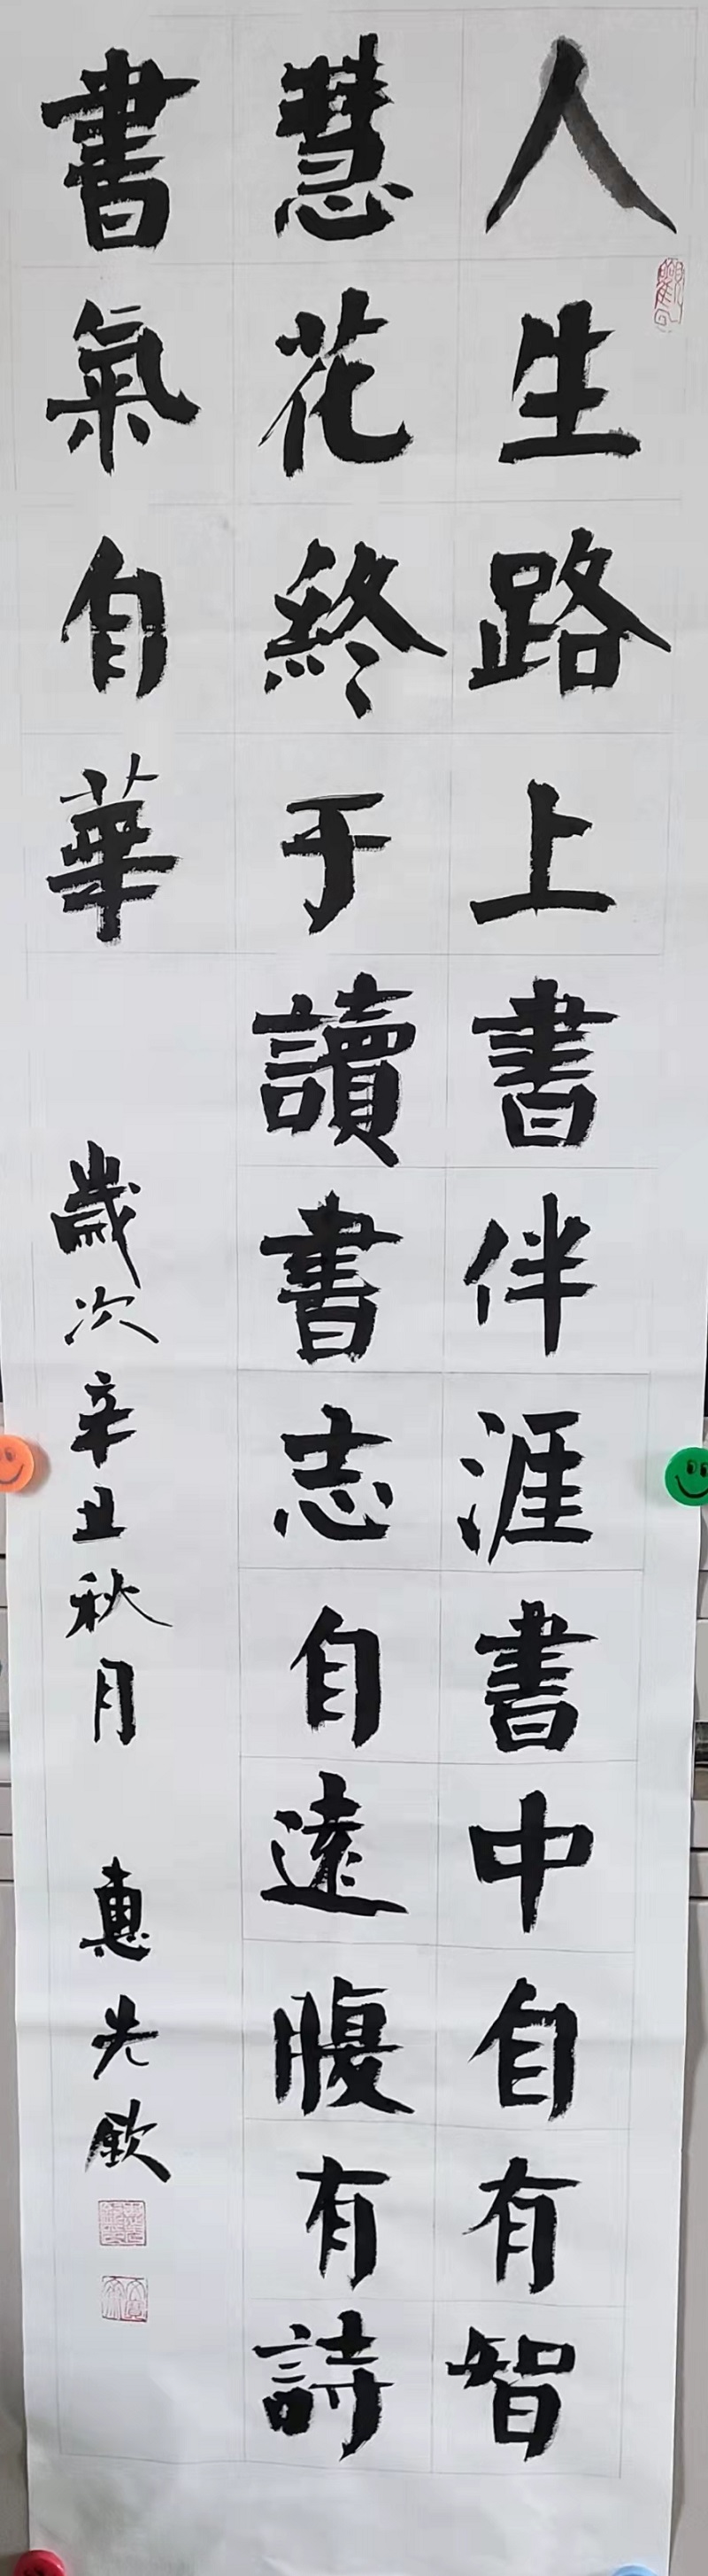 人生路上書伴涯書中自有智
慧花終于讀書志自遠腹有詩
書氣自華
歲次辛丑秋月 惠先欽